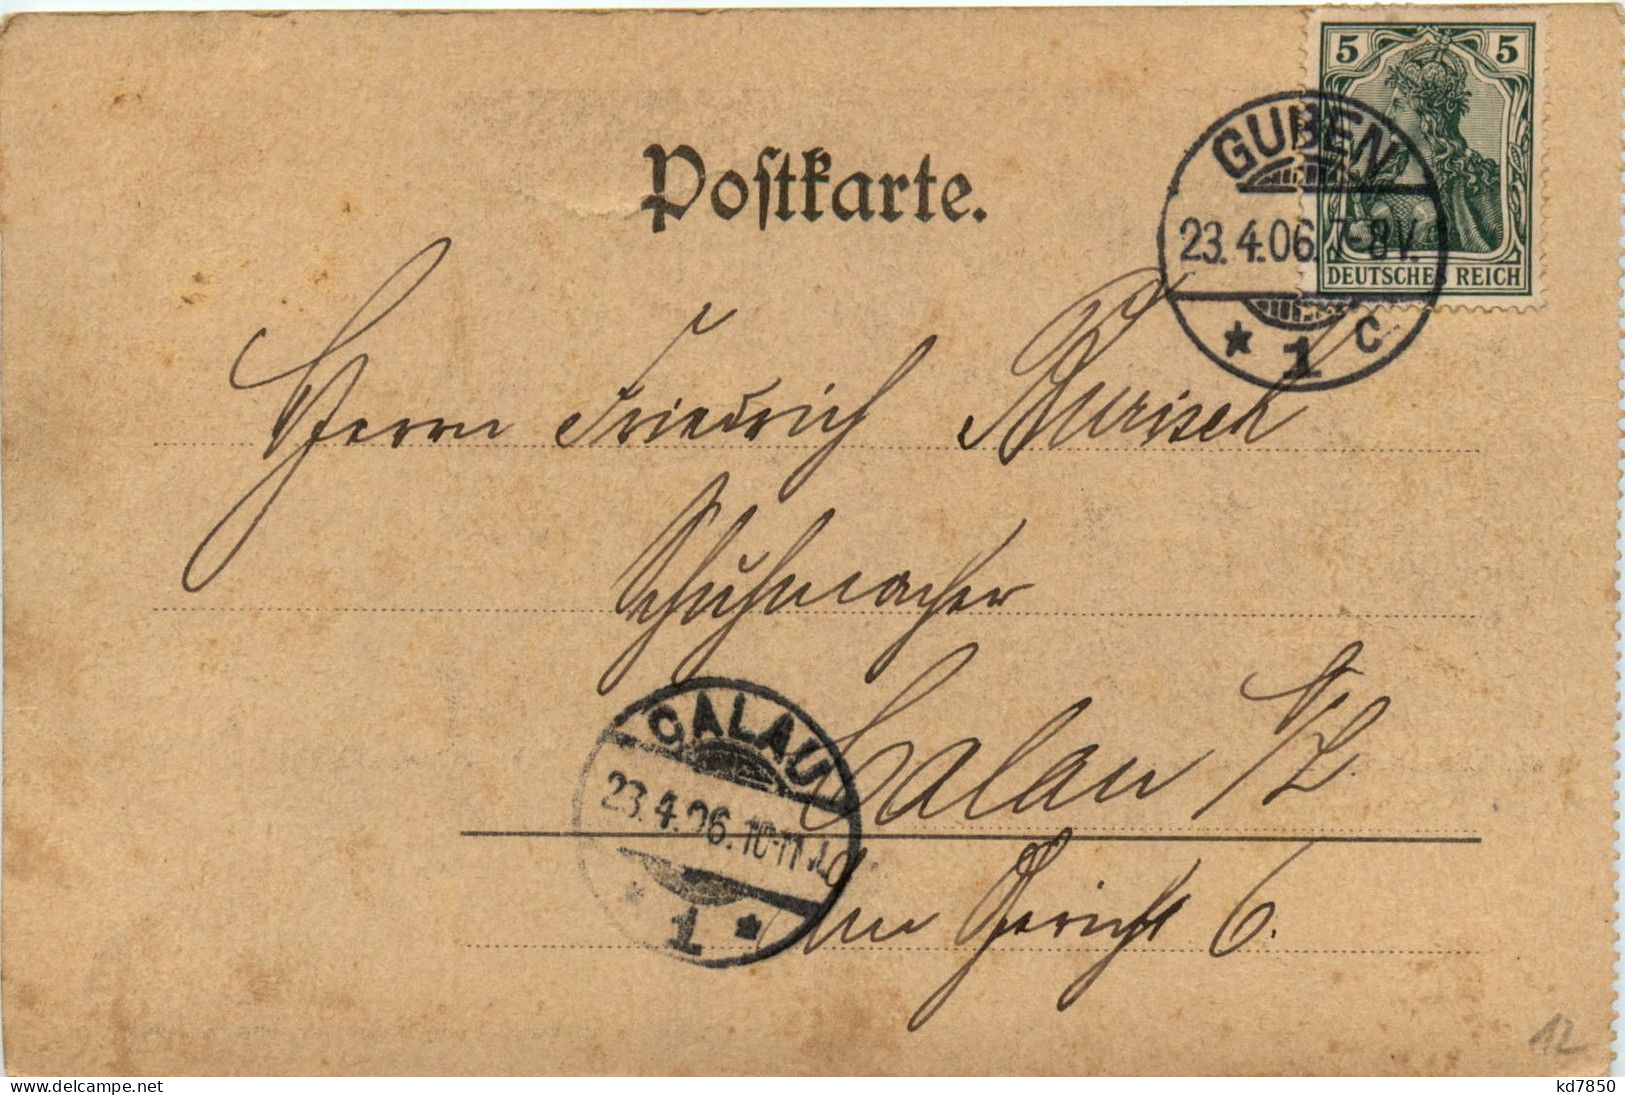 5 5
DEUTSCHES REICH
GUBEN
23.4.06.7-8V.
* 1 C
Postkarte.
Herrn Friedrich
Schuhmacher
Calau N/L.
CALAU
23.4.06.10-11V.
* 1 *
Am Gericht 6.
12
kd7850